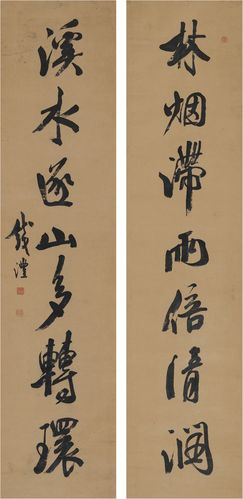 林烟滯雨倍清潤
溪水遂山多轉環
錢灃